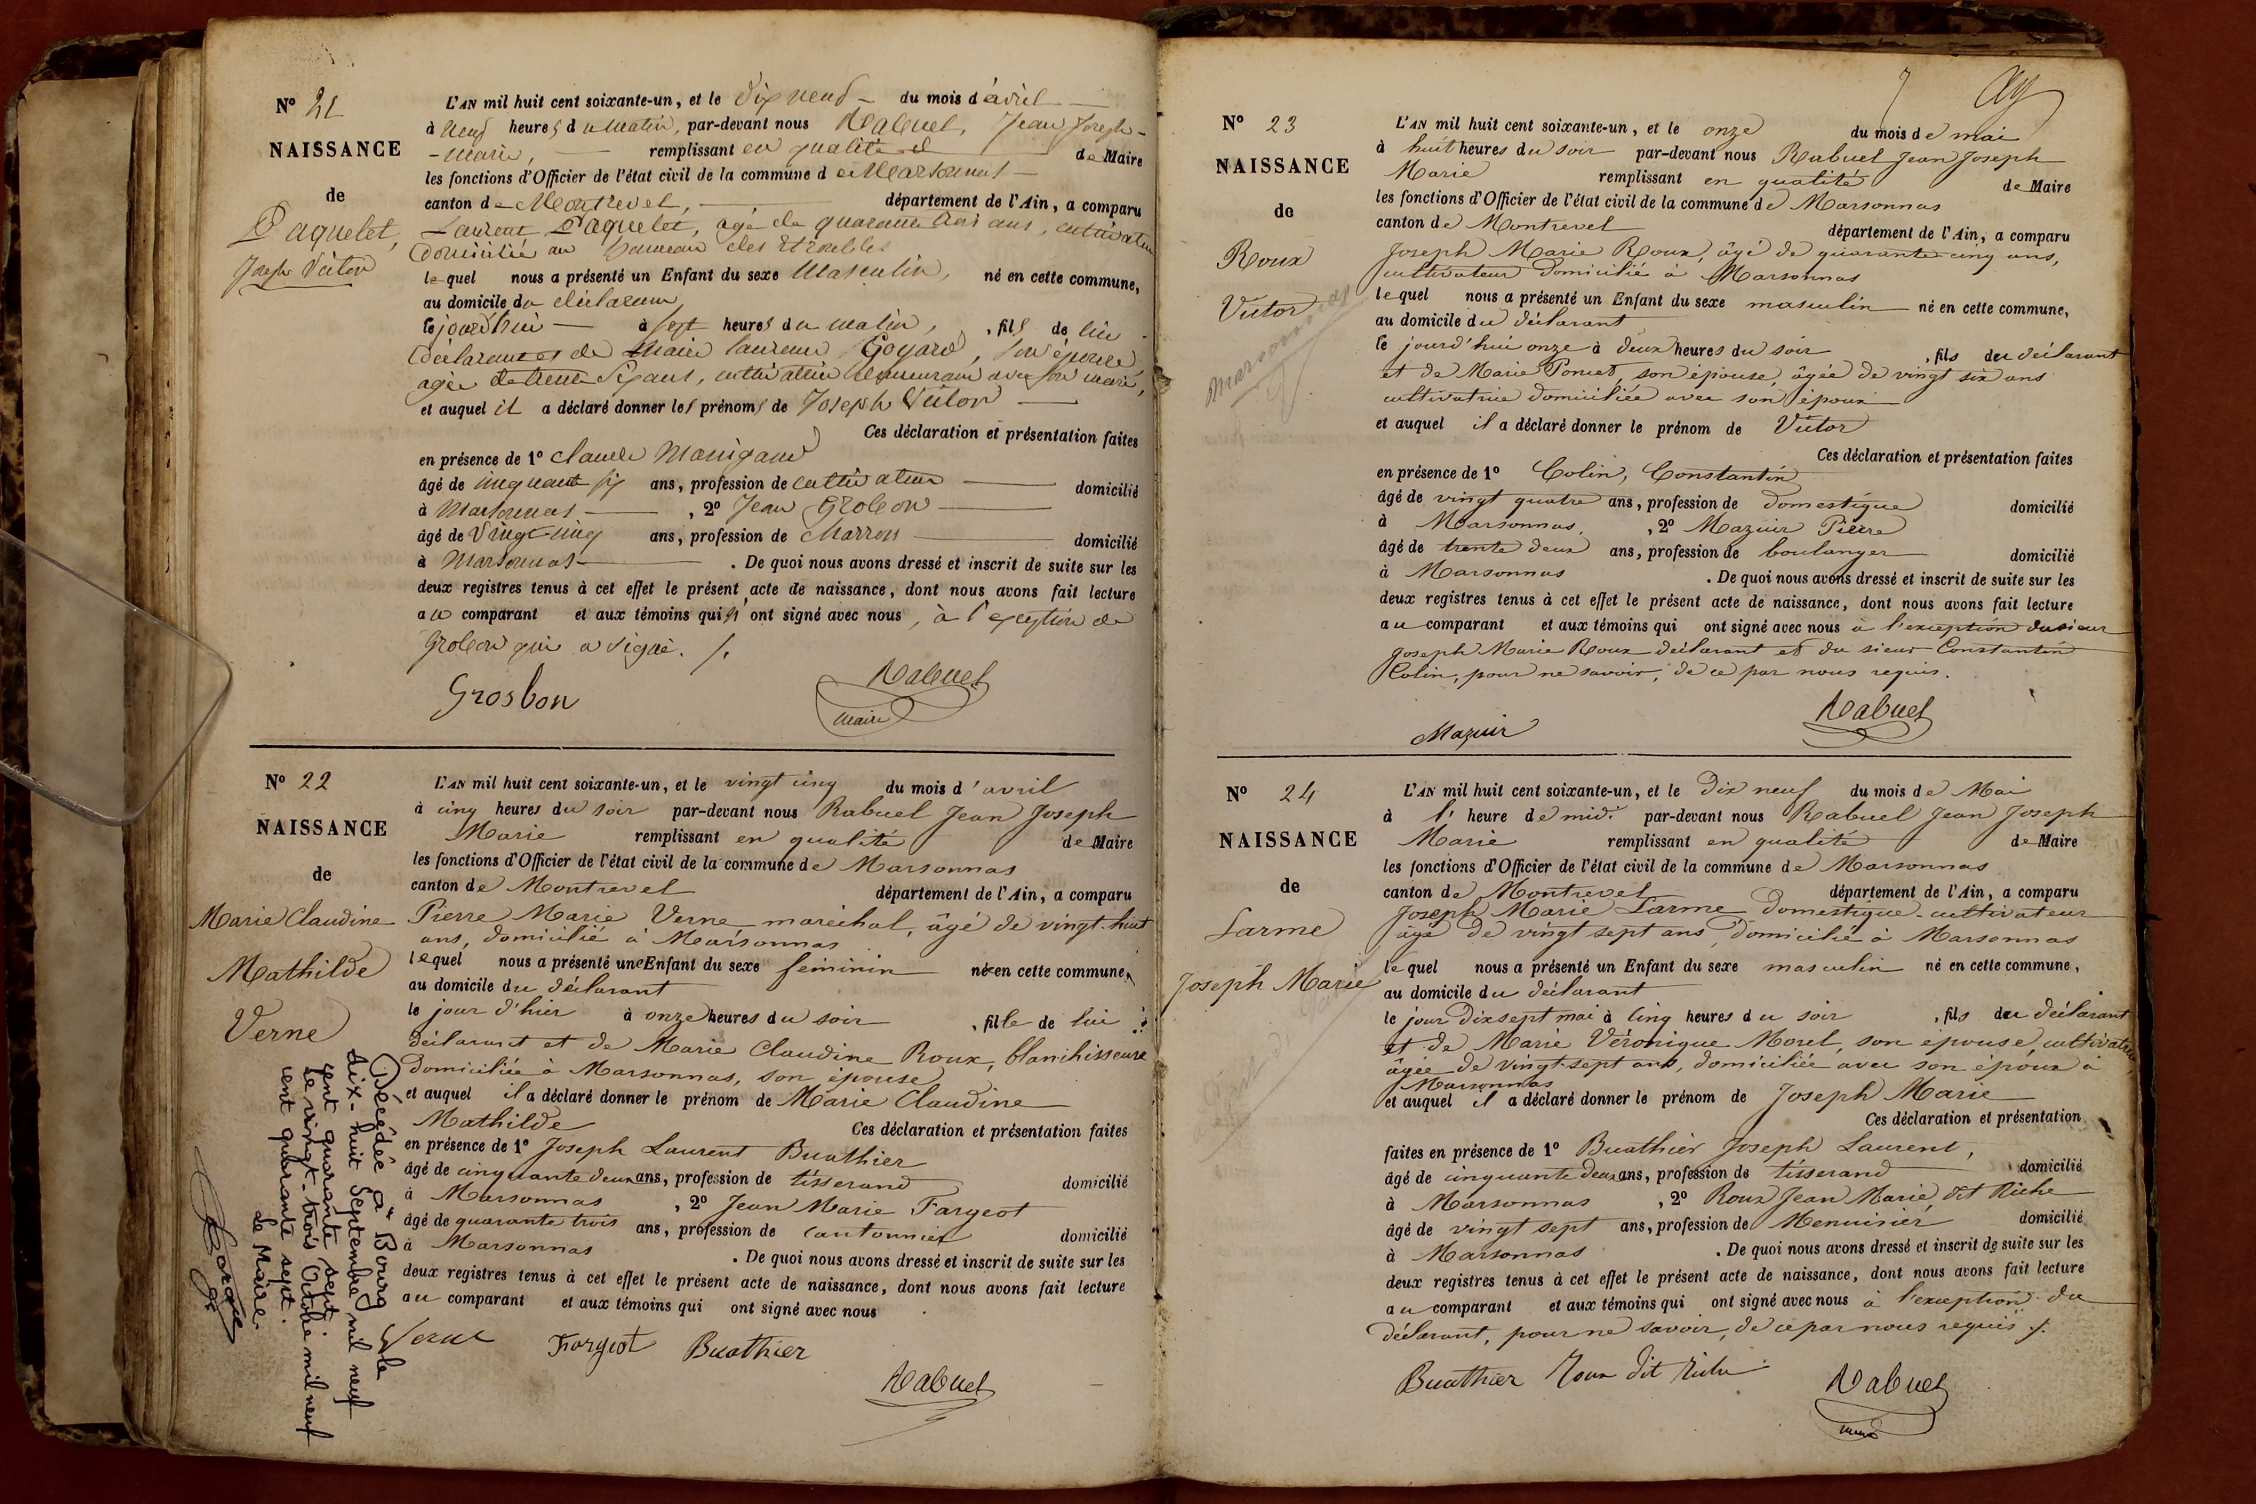 N° 21
NAISSANCE
de
Paquelet,
Joseph Victor
L'AN mil huit cent soixante-un, et le dix neuf du mois d'avril
à neuf heures du matin, par-devant nous Rabuel, Jean Joseph-
-Marie, remplissant en qualité de Maire
les fonctions d'Officier de l'état civil de la commune de Marsonnas
canton de Montrevel, département de l'Ain, a comparu
Laurent Paquelet, agé de quarante trois ans, cultivateur
domicilié au hameau des
lequel nous a présenté un Enfant du sexe Masculin, né en cette commune,
au domicile du déclarant,
le jourd'hui à sept heures du matin, fils de lui
déclarant et de Marie laurence Goyard, son épouse
agée de trente six ans, cultivatrice demeurant avec son mari,
et auquel il a déclaré donner les prénoms de Joseph Victor
Ces déclaration et présentation faites
en présence de 1° Claude Manigand
âgé de cinquante six ans, profession de cultivateur domicilié
à Marsonnas, 2° Jean Grobon
âgé de vingt-cinq ans, profession de charron domicilié
à Marsonnas. De quoi nous avons dressé et inscrit de suite sur les
deux registres tenus à cet effet le présent acte de naissance, dont nous avons fait lecture
au comparant et aux témoins qui n'ont signé avec nous, à l'exception de
Grobon qui a signé. /.
Grosbon Rabuel
maire
N° 22
NAISSANCE
de
Marie Claudine
Mathilde
Verne
L'AN mil huit cent soixante-un, et le vingt cinq du mois d'avril
à cinq heures du soir par-devant nous Rabuel Jean Joseph
Marie remplissant en qualité de Maire
les fonctions d'Officier de l'état civil de la commune de Marsonnas
canton de Montrevel département de l'Ain, a comparu
Pierre Marie Verne maréchal, âgé de vingt-huit
ans, domicilié à Marsonnas
lequel nous a présenté une Enfant du sexe féminin née en cette commune,
au domicile du déclarant
le jour d'hier à onze heures du soir, fille de lui
déclarant et de Marie Claudine Roux, blanchisseuse
domiciliée à Marsonnas, son épouse
et auquel il a déclaré donner le prénom de Marie Claudine
Mathilde Ces déclaration et présentation faites
en présence de 1° Joseph Laurent Buathier
âgé de cinquante deux ans, profession de tisserand domicilié
à Marsonnas, 2° Jean Marie Fargeot
âgé de quarante trois ans, profession de cantonnier domicilié
à Marsonnas. De quoi nous avons dressé et inscrit de suite sur les
deux registres tenus à cet effet le présent acte de naissance, dont nous avons fait lecture
au comparant et aux témoins qui ont signé avec nous
Verne Forgeot Buathier
Rabuel
Décédée à Bourg le
dix-huit Septembre mil neuf
cent quarante sept.
Le vingt-trois Octobre mil neuf
cent quarante sept.
Le Maire.
N° 23
NAISSANCE
de
Roux
Victor
Marsonnas
L'AN mil huit cent soixante-un, et le onze du mois de mai
à huit heures du soir par-devant nous Rabuel Jean Joseph
Marie remplissant en qualité de Maire
les fonctions d'Officier de l'état civil de la commune de Marsonnas
canton de Montrevel département de l'Ain, a comparu
Joseph Marie Roux, âgé de quarante-cinq ans,
cultivateur domicilié à Marsonnas
lequel nous a présenté un Enfant du sexe masculin né en cette commune,
au domicile du déclarant
le jourd'hui onze à deux heures du soir, fils du déclarant
et de Marie Poncet, son épouse, âgée de vingt six ans
cultivatrice domiciliée avec son époux
et auquel il a déclaré donner le prénom de Victor
Ces déclaration et présentation faites
en présence de 1° Colin, Constantin
âgé de vingt quatre ans, profession de domestique domicilié
à Marsonnas, 2° Mazuir Pierre
âgé de trente deux ans, profession de boulanger domicilié
à Marsonnas. De quoi nous avons dressé et inscrit de suite sur les
deux registres tenus à cet effet le présent acte de naissance, dont nous avons fait lecture
au comparant et aux témoins qui ont signé avec nous à l'exception du sieur
Joseph Marie Roux déclarant et du sieur Constantin
Colin, pour ne savoir, de ce par nous requis.
Mazuir Rabuel
N° 24
NAISSANCE
de
Larme
Joseph Marie
L'AN mil huit cent soixante-un, et le dix neuf du mois de Mai
à l' heure de midi par-devant nous Rabuel Jean Joseph
Marie remplissant en qualité de Maire
les fonctions d'Officier de l'état civil de la commune de Marsonnas
canton de Montrevel département de l'Ain, a comparu
Joseph Marie Larme domestique-cultivateur
âgé de vingt sept ans, domicilié à Marsonnas
lequel nous a présenté un Enfant du sexe masculin né en cette commune,
au domicile du déclarant
le jour dix sept mai à cinq heures du soir, fils du déclarant
et de Marie Véronique Morel, son épouse, cultivatrice,
âgée de vingt-sept ans, domiciliée avec son époux à
Marsonnas
et auquel il a déclaré donner le prénom de Joseph Marie
Ces déclaration et présentation
faites en présence de 1° Buathier Joseph Laurent,
âgé de cinquante deux ans, profession de tisserand domicilié
à Marsonnas, 2° Roux Jean Marie, dit Riche
âgé de vingt sept ans, profession de Menuisier domicilié
à Marsonnas. De quoi nous avons dressé et inscrit de suite sur les
deux registres tenus à cet effet le présent acte de naissance, dont nous avons fait lecture
au comparant et aux témoins qui ont signé avec nous à l'exception du
déclarant, pour ne savoir, de ce par nous requis ./.
Buathier Roux dit Riche Rabuel
maire